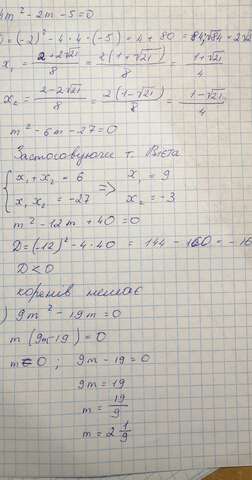 4m² - 2m - 5 = 0
D = (-2)² - 4 · 4 · (-5) = 4 + 80 = 84; √84 = 2√21
x₁ = (2+2√21)/8 = 2(1+√21)/8 = (1+√21)/4
x₂ = (2-2√21)/8 = 2(1-√21)/8 = (1-√21)/4
m² - 6m - 27 = 0
Застосовуючи т. Вієта
{ x₁ + x₂ = 6 => x₁ = 9
x₁ x₂ = -27 x₂ = -3
m² - 12m + 40 = 0
D = (-12)² - 4 · 40 = 144 - 160 = -16
D < 0
коренів немає
) 9m² - 19m = 0
m (9m-19) = 0
m = 0 ; 9m - 19 = 0
9m = 19
m = 19/9
m = 2 1/9